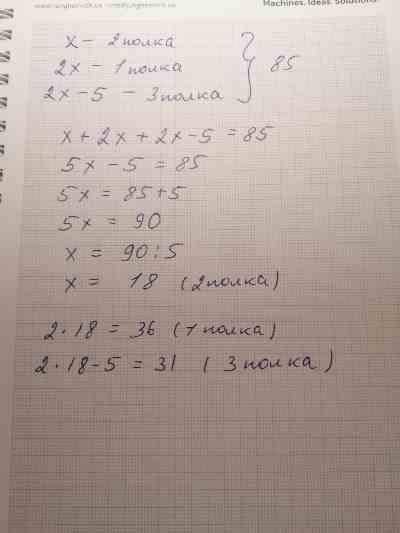 Machines. Ideas. Solutions.
x - 2 полка
2x - 1 полка } 85
2x - 5 - 3 полка
x + 2x + 2x - 5 = 85
5x - 5 = 85
5x = 85 + 5
5x = 90
x = 90 : 5
x = 18 (2 полка)
2 · 18 = 36 (1 полка)
2 · 18 - 5 = 31 (3 полка)